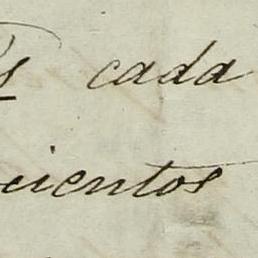 cada
cientos